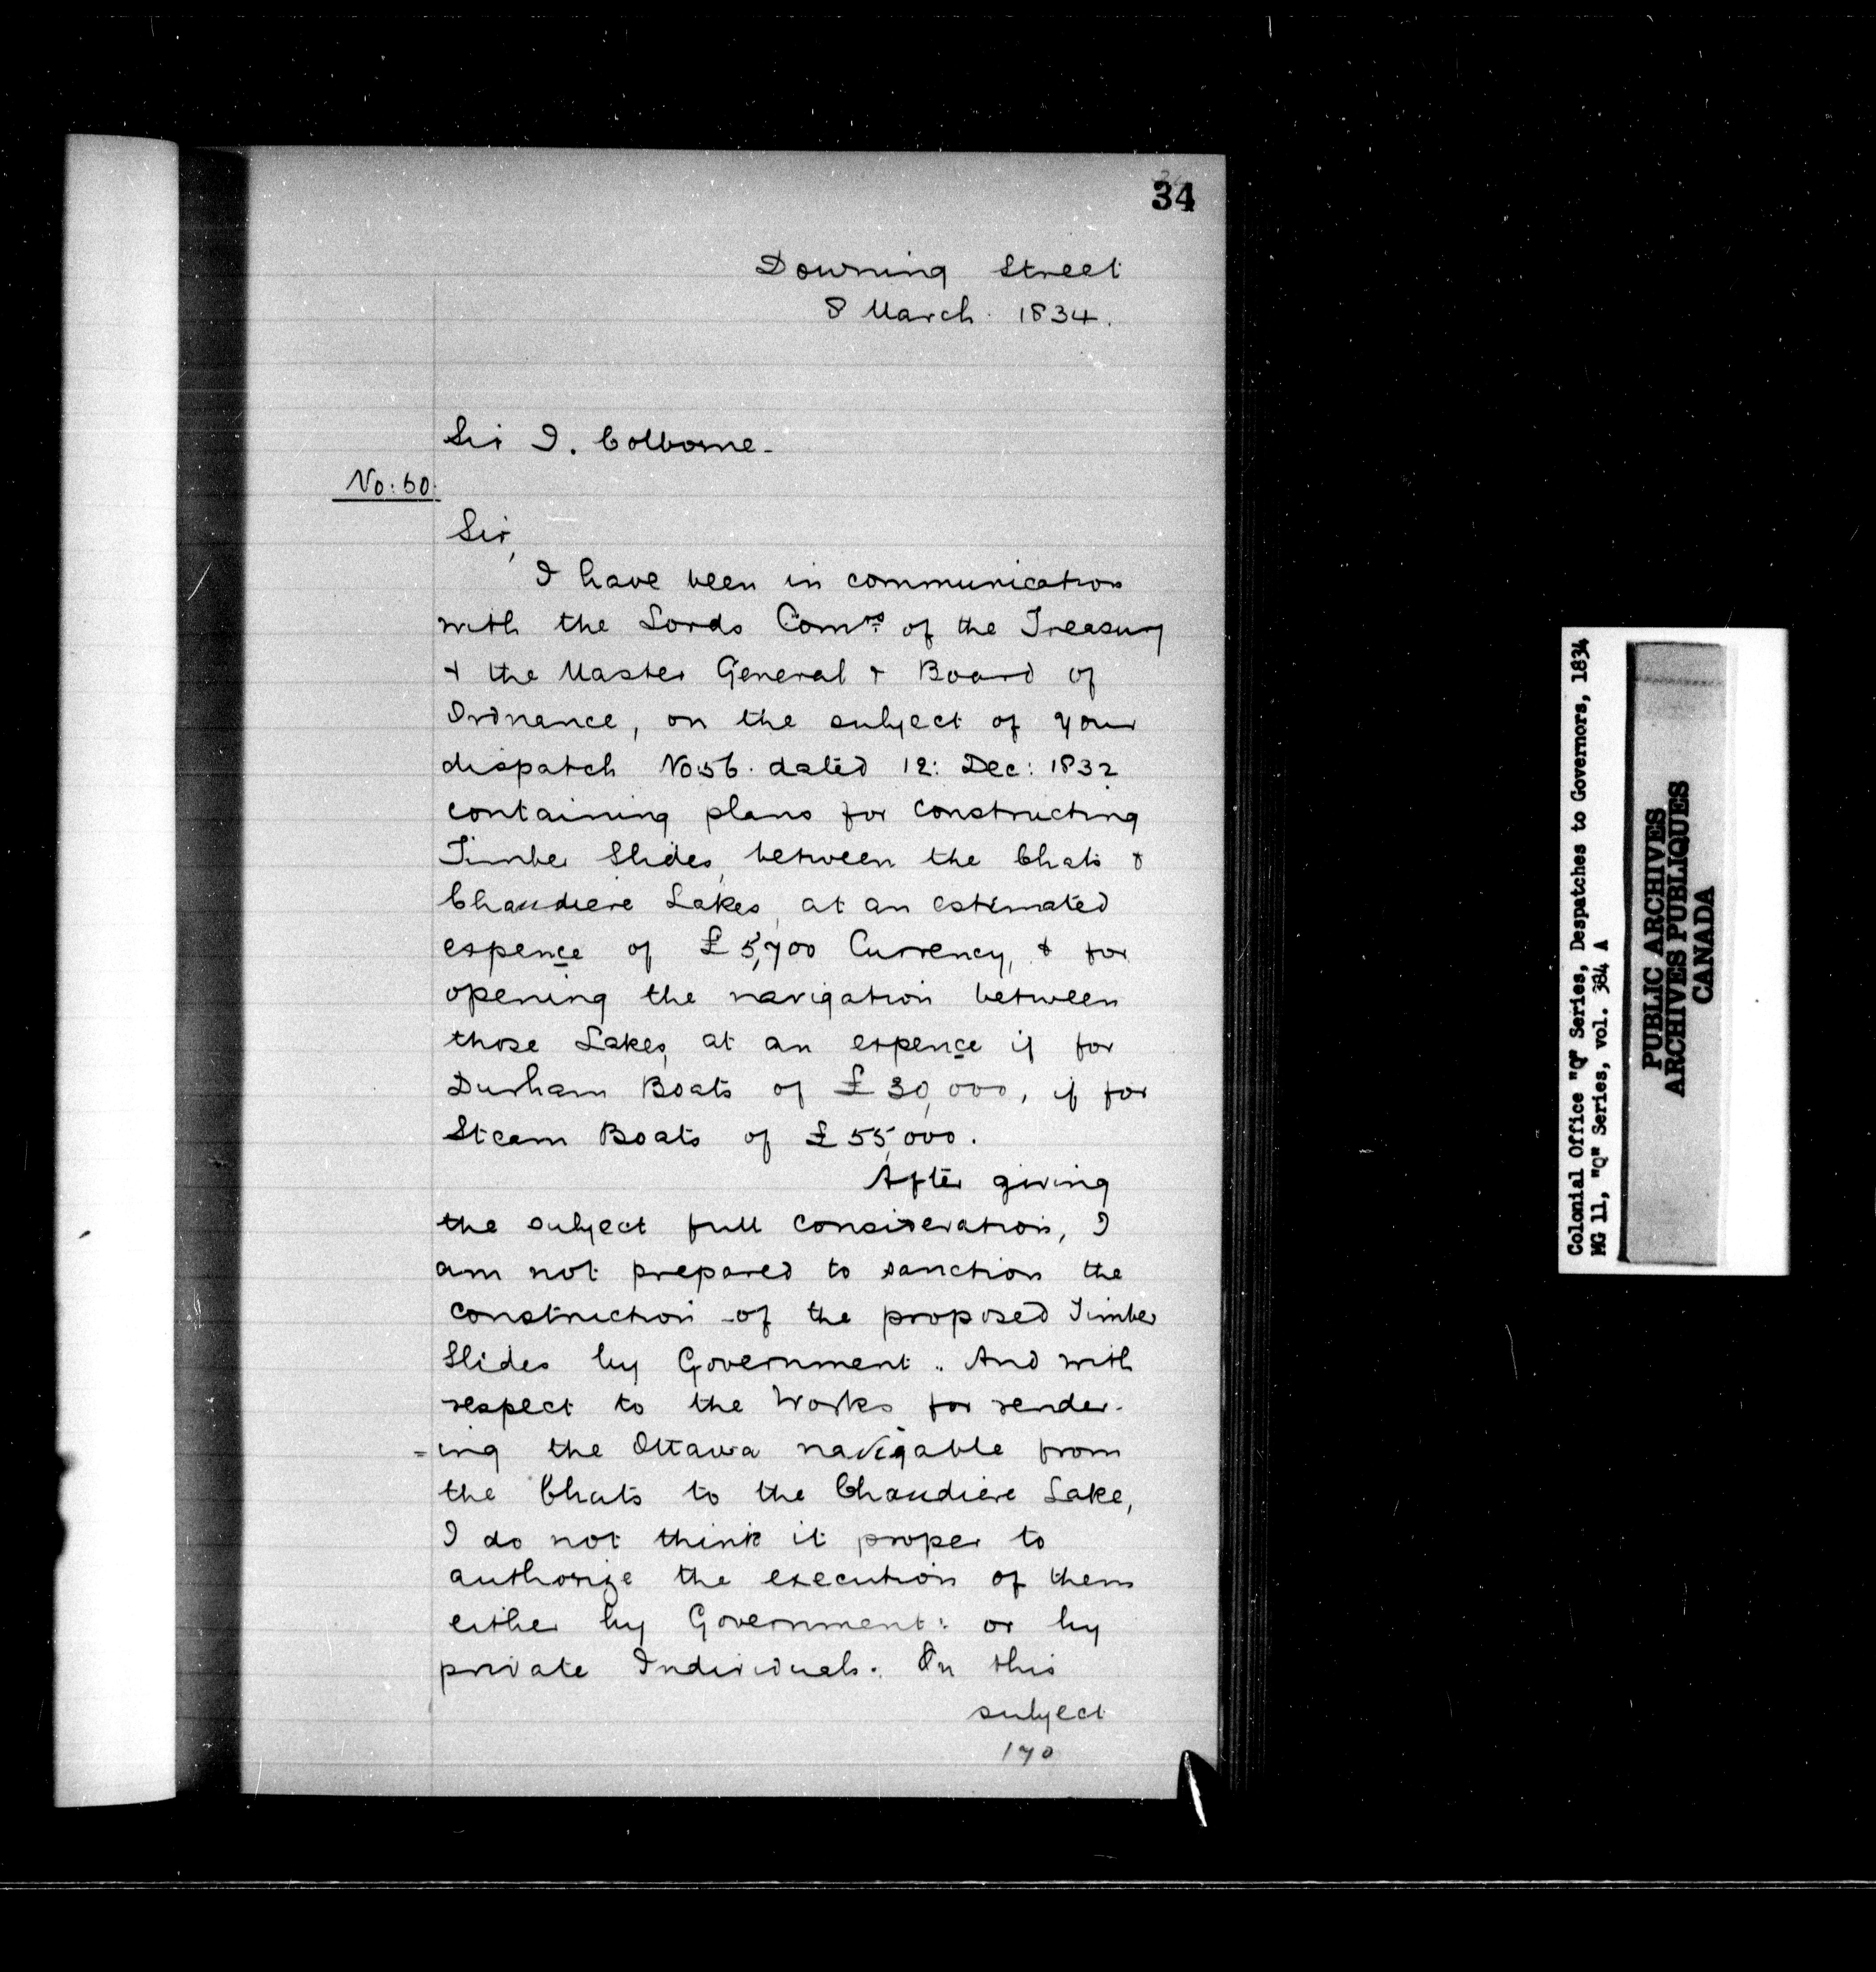 34
Downing Street
8 March 1834.
Sir J. Colborne.
No: 60.
Sir,
I have been in communication
with the Lords Comrs. of the Treasury
& the Master General & Board of
Ordnance, on the subject of your
dispatch No 56. dated 12: Dec: 1832
containing plans for constructing
Timber Slides, between the Chats &
Chaudiere Lakes, at an estimated
expence of £5,700 Currency, & for
opening the navigation between
those Lakes, at an expence if for
Durham Boats of £30,000, if for
Steam Boats of £55,000.
After giving
the subject full consideration, I
am not prepared to sanction the
construction of the proposed Timber
Slides by Government. And with
respect to the Works for render-
=ing the Ottawa navigable from
the Chats to the Chaudiere Lake,
I do not think it proper to
authorize the execution of them
either by Government: or by
private Individuals. On this
subject
170
Colonial Office "Q" Series, Despatches to Governors, 1834
MG 11, "Q" Series, vol. 384 A
PUBLIC ARCHIVES
ARCHIVES PUBLIQUES
CANADA